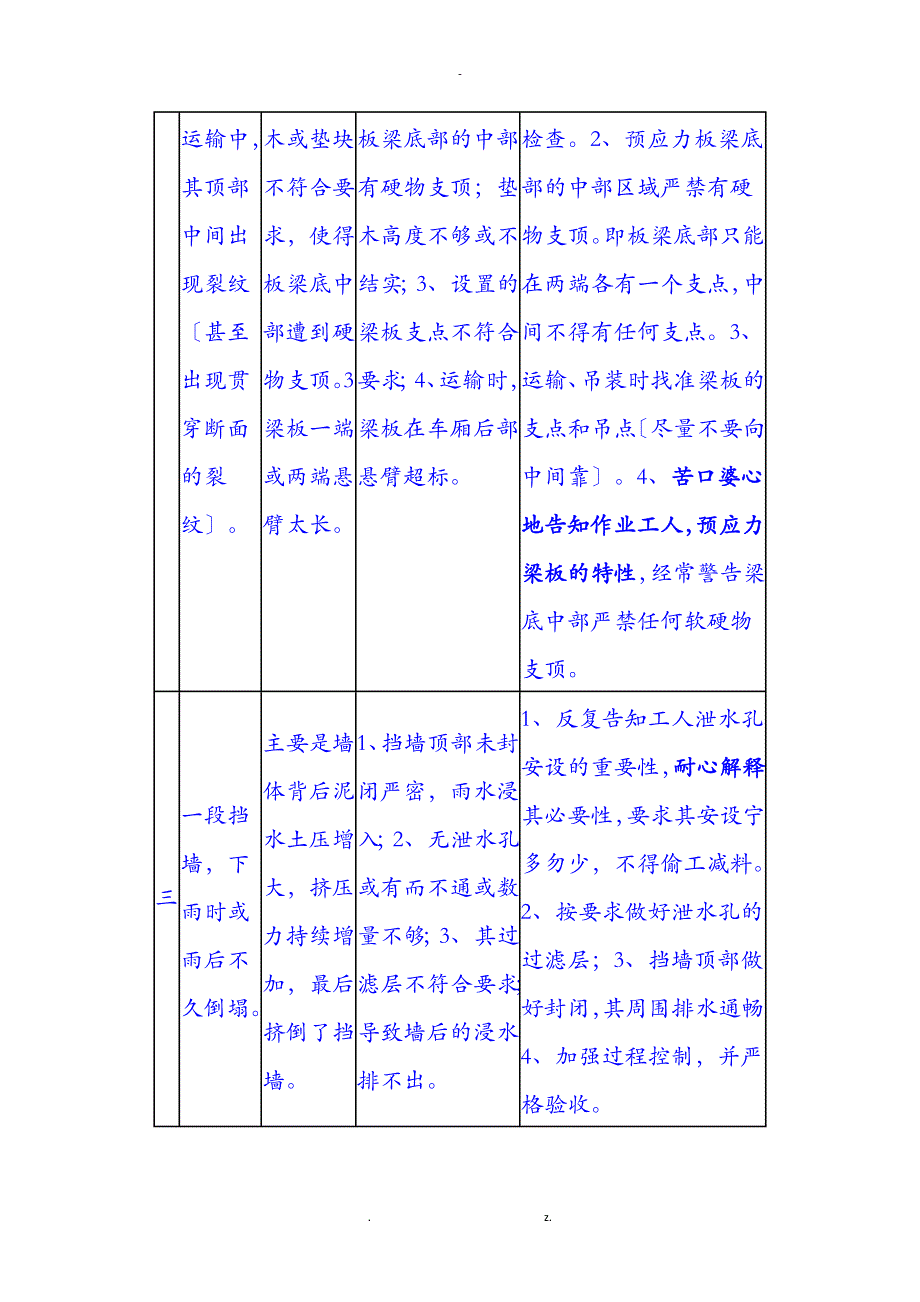 -
运输中，
其顶部
中间出
现裂纹
〔甚至
出现贯
穿断面
的裂
纹〕。
木或垫块
不符合要
求，使得
板梁底中
部遭到硬
物支顶。3
梁板一端
或两端悬
臂太长。
板梁底部的中部
有硬物支顶；垫
木高度不够或不
结实；3、设置的
梁板支点不符合
要求；4、运输时，
梁板在车厢后部
悬臂超标。
检查。2、预应力板梁底
部的中部区域严禁有硬
物支顶。即板梁底部只能
在两端各有一个支点，中
间不得有任何支点。3、
运输、吊装时找准梁板的
支点和吊点〔尽量不要向
中间靠〕。4、苦口婆心
地告知作业工人，预应力
梁板的特性，经常警告梁
底中部严禁任何软硬物
支顶。
三
一段挡
墙，下
雨时或
雨后不
久倒塌。
主要是墙
体背后泥
水土压增
大，挤压
力持续增
加，最后
挤倒了挡
墙。
1、挡墙顶部未封
闭严密，雨水浸
入；2、无泄水孔
或有而不通或数
量不够；3、其过
滤层不符合要求；
导致墙后的浸水
排不出。
1、反复告知工人泄水孔
安设的重要性，耐心解释
其必要性，要求其安设宁
多勿少，不得偷工减料。
2、按要求做好泄水孔的
过滤层；3、挡墙顶部做
好封闭，其周围排水通畅
4、加强过程控制，并严
格验收。
. z.